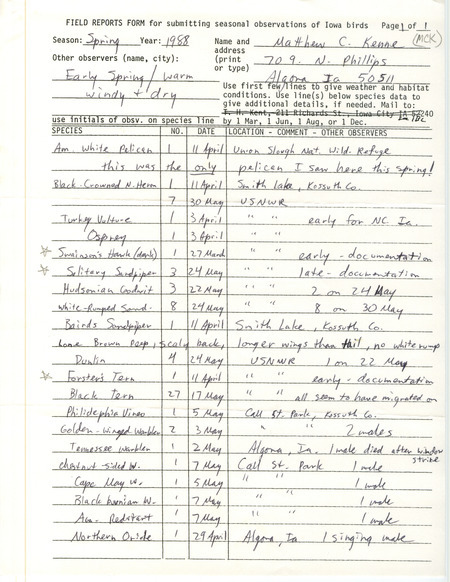 FIELD REPORTS FORM for submitting seasonal observations of Iowa birds Page 1 of 1
Season: Spring Year: 1988 Name and Matthew C. Kenne (MCK)
Other observers (name, city): address 709 N. Phillips
(print
or type) Algona Ia 50511
Early Spring / warm
windy + dry
Use first few/lines to give weather and habitat
conditions. Use line(s) below species data to
give additional details, if needed. Mail to:
T. H. Kent, 211 Richards St., Iowa City IA 52240
use initials of obsv. on species line by 1 Mar, 1 Jun, 1 Aug, or 1 Dec.
SPECIES NO. DATE LOCATION - COMMENT - OTHER OBSERVERS
Am. White Pelican 1 11 April Union Slough Nat. Wild. Refuge
this was the only pelican I saw here this spring!
Black-Crowned N. Heron 1 11 April Smith Lake, Kossuth Co.
7 30 May USNWR
Turkey Vulture 1 3 April " " early for NC Ia.
Osprey 1 3 April " "
Swainson's Hawk (dark) 1 27 March " " early - documentation
Solitary Sandpiper 3 24 May " " late - documentation
Hudsonian Godwit 3 22 May " " 2 on 24 May
White-Rumped Sand. 8 24 May " " 8 on 30 May
Bairds Sandpiper 1 11 April Smith Lake, Kossuth Co.
Lone Brown Peep, scaly back, longer wings than tail, no white rump
Dunlin 4 24 May USNWR 1 on 22 May
Forster's Tern 1 11 April " " early - documentation
Black Tern 27 17 May " " all seem to have migrated on
Philidelphia Vireo 1 5 May Call St. Park, Kossuth Co.
Golden-Winged Warbler 2 3 May " " 2 males
Tennessee Warbler 1 2 May Algona, Ia. 1 male died after window strike
chestnut-sided W. 1 7 May Call St. Park 1 male
Cape May W. 1 5 May " " 1 male
Blackburnian W. 1 7 May " " 1 male
Am. Redstart 1 7 May " " 1 male
Northern Oriole 1 29 April Algona, Ia 1 singing male